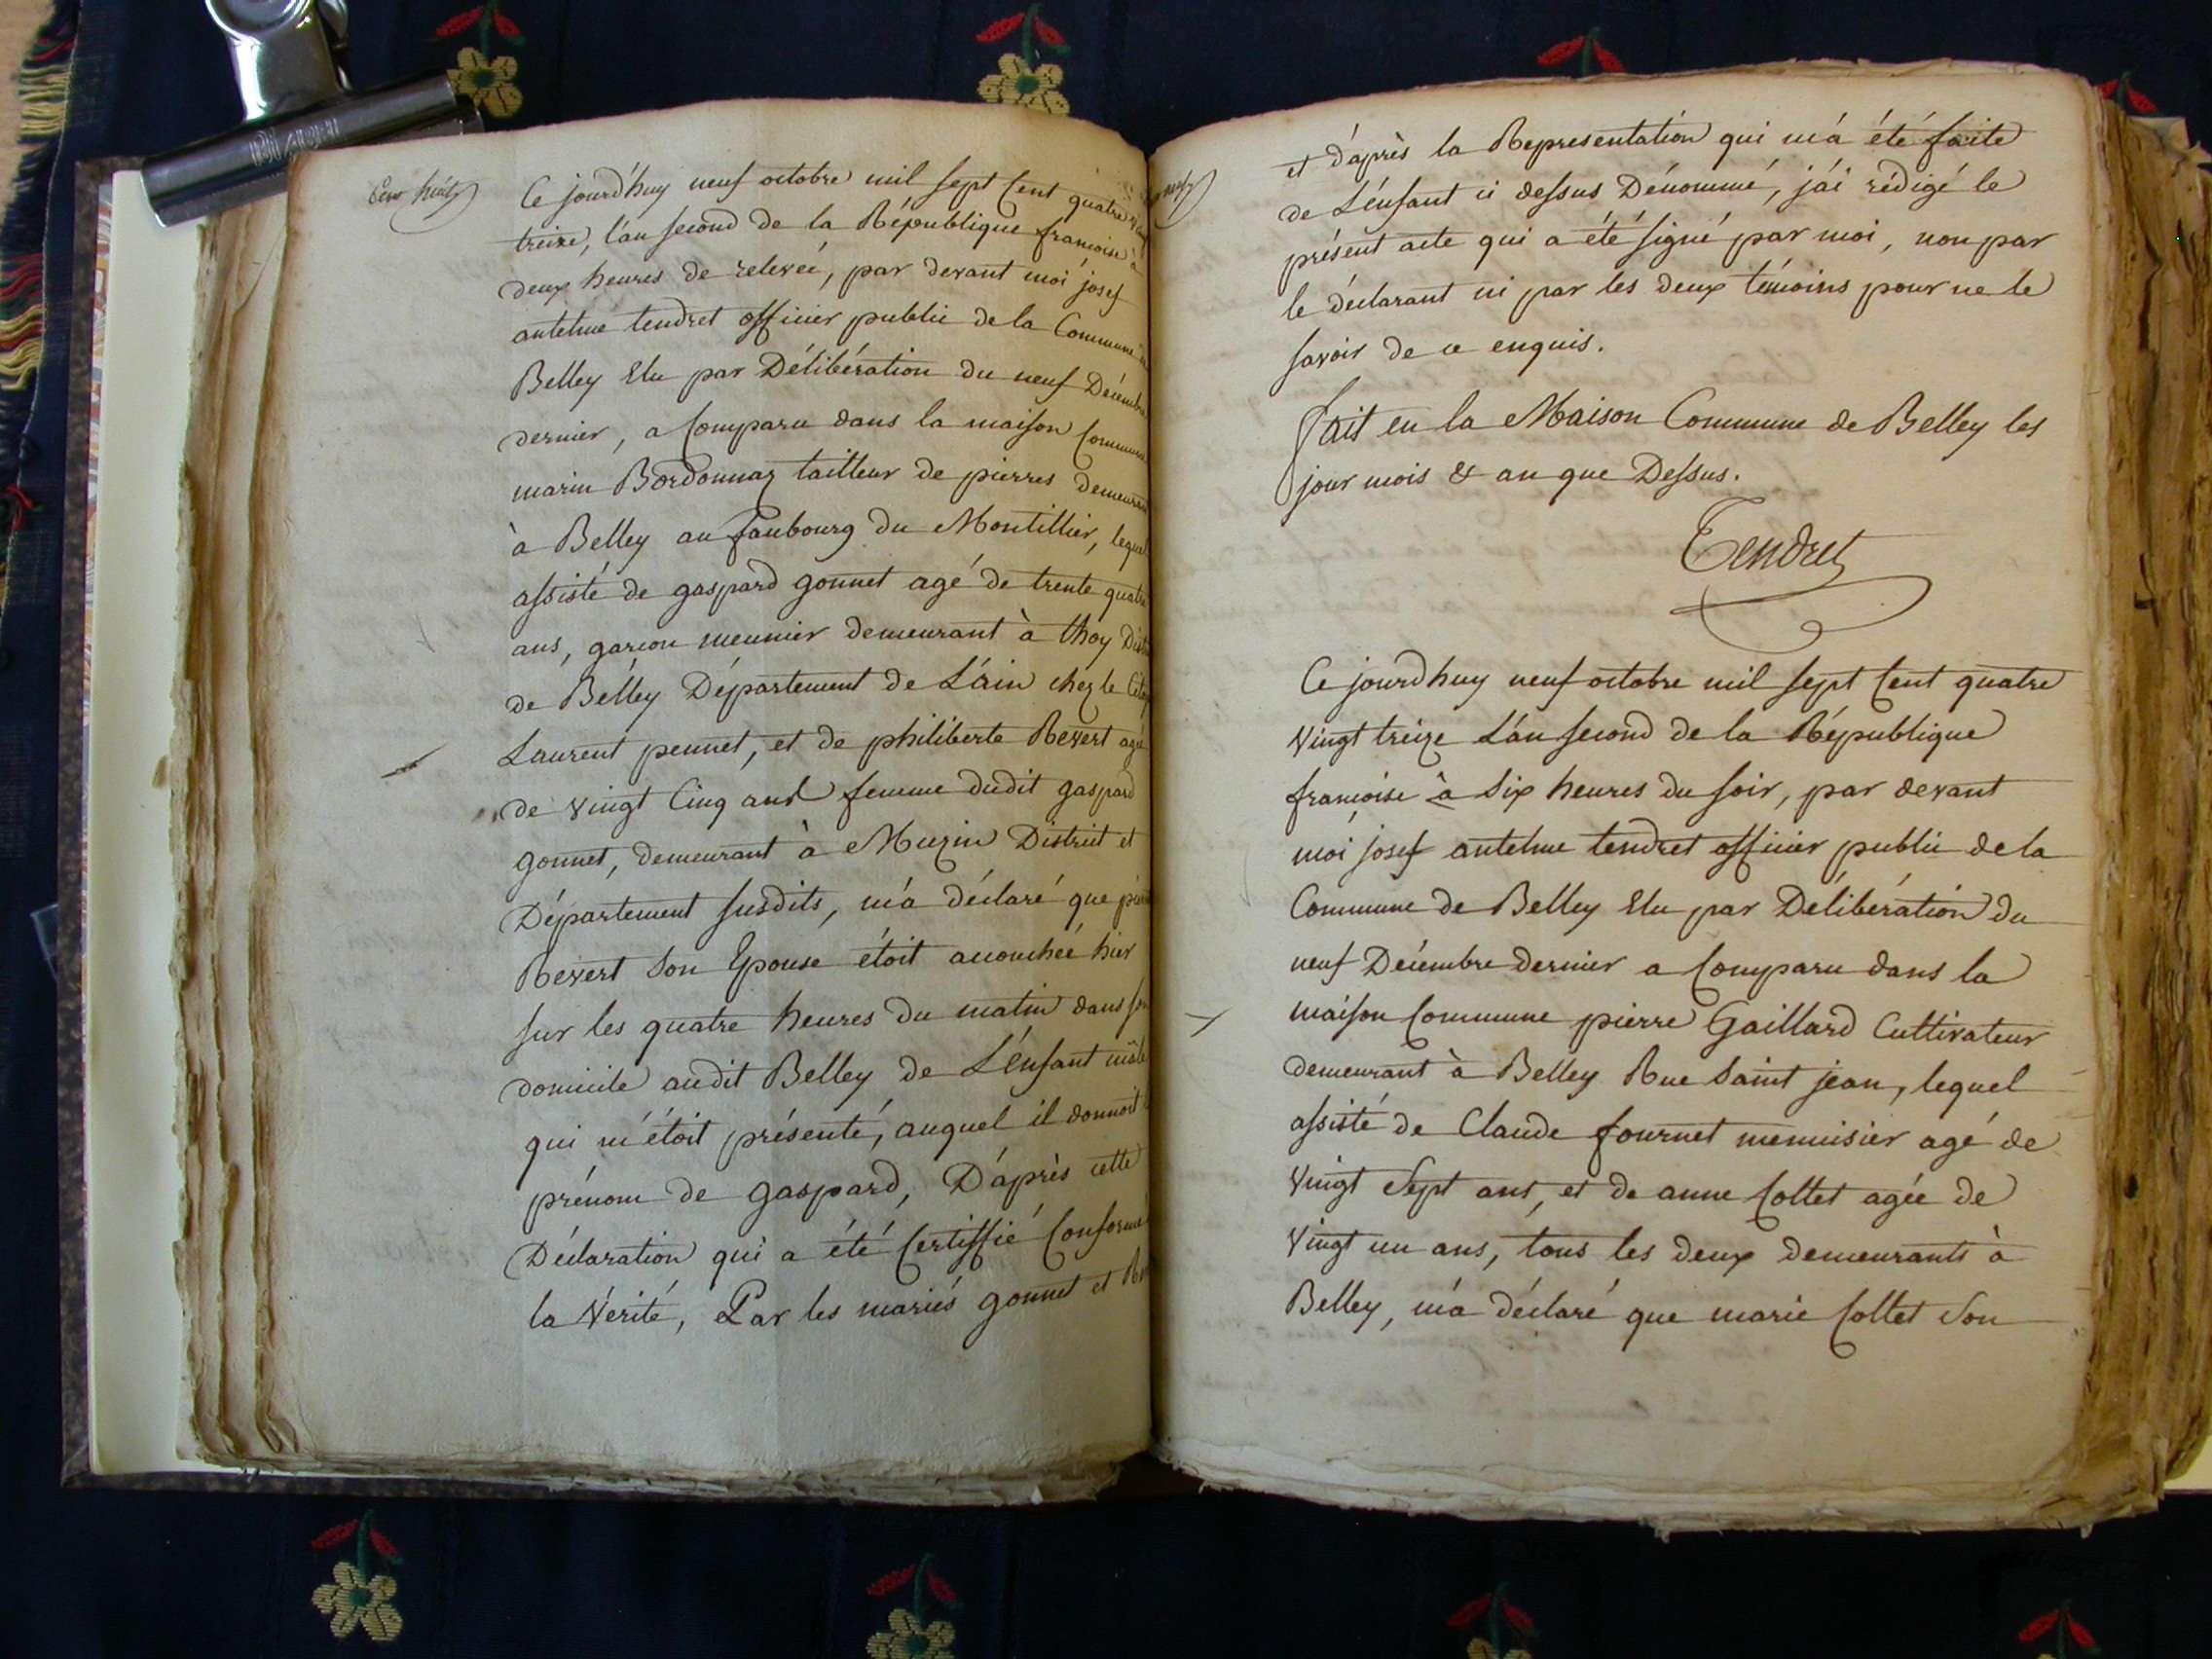 Cent huit
Ce jourd'huy neuf octobre mil sept Cent quatre vingt
treize, l'an second de la République françoise à
deux heures de relevée, par devant moi josef
antelme tendret officier public de la Commune de
Belley Elu par Délibération du neuf Décembre
dernier, a Comparu dans la maison Commune
marin Bordonnaz tailleur de pierres demeurant
à Belley au faubourg du Montillier, lequel
assisté de gaspard gonnet agé de trente quatre
ans, garcon meunier demeurant à thoy District
de Belley Département de L'ain chez le Citoyen
Laurent pennet, et de philiberte Revert agée
de vingt Cinq ans femme dudit gaspard
gonnet, demeurant à Muzin District et
Département susdits, m'a déclaré que
Revert Son Epouse étoit accouchée hier
sur les quatre heures du matin dans son
domicile audit Belley de L'énfant mâle
qui m'étoit présenté, auquel il donnoit le
prénom de gaspard, D'après cette
Déclaration qui a été Certiffié Conforme à
la Vérité, Par les mariés gonnet et Revert
neuf
et d'après la Representation qui m'a été faite
de L'énfant ci dessus Dénommé, j'ai rédigé le
présent acte qui a été signé par moi, non par
le déclarant ni par les deux témoins pour ne le
savoir de ce enquis.
Fait en la Maison Commune de Belley les
jour mois & an que Dessus.
Tendret
Ce jourdhuy neuf octobre mil sept Cent quatre
vingt treize L'an second de la République
françoise à Six heures du soir, par devant
moi josef antelme tendret officier public de la
Commune de Belley Elu par Délibération du
neuf Décembre dernier a Comparu dans la
maison Commune pierre Gaillard Cultivateur
demeurant à Belley Rue Saint jean, lequel
assisté de Claude fournet menuisier agé de
Vingt Sept ans, et de anne Collet agée de
Vingt un ans, tous les deux demeurants à
Belley, m'a déclaré que marie Collet Son